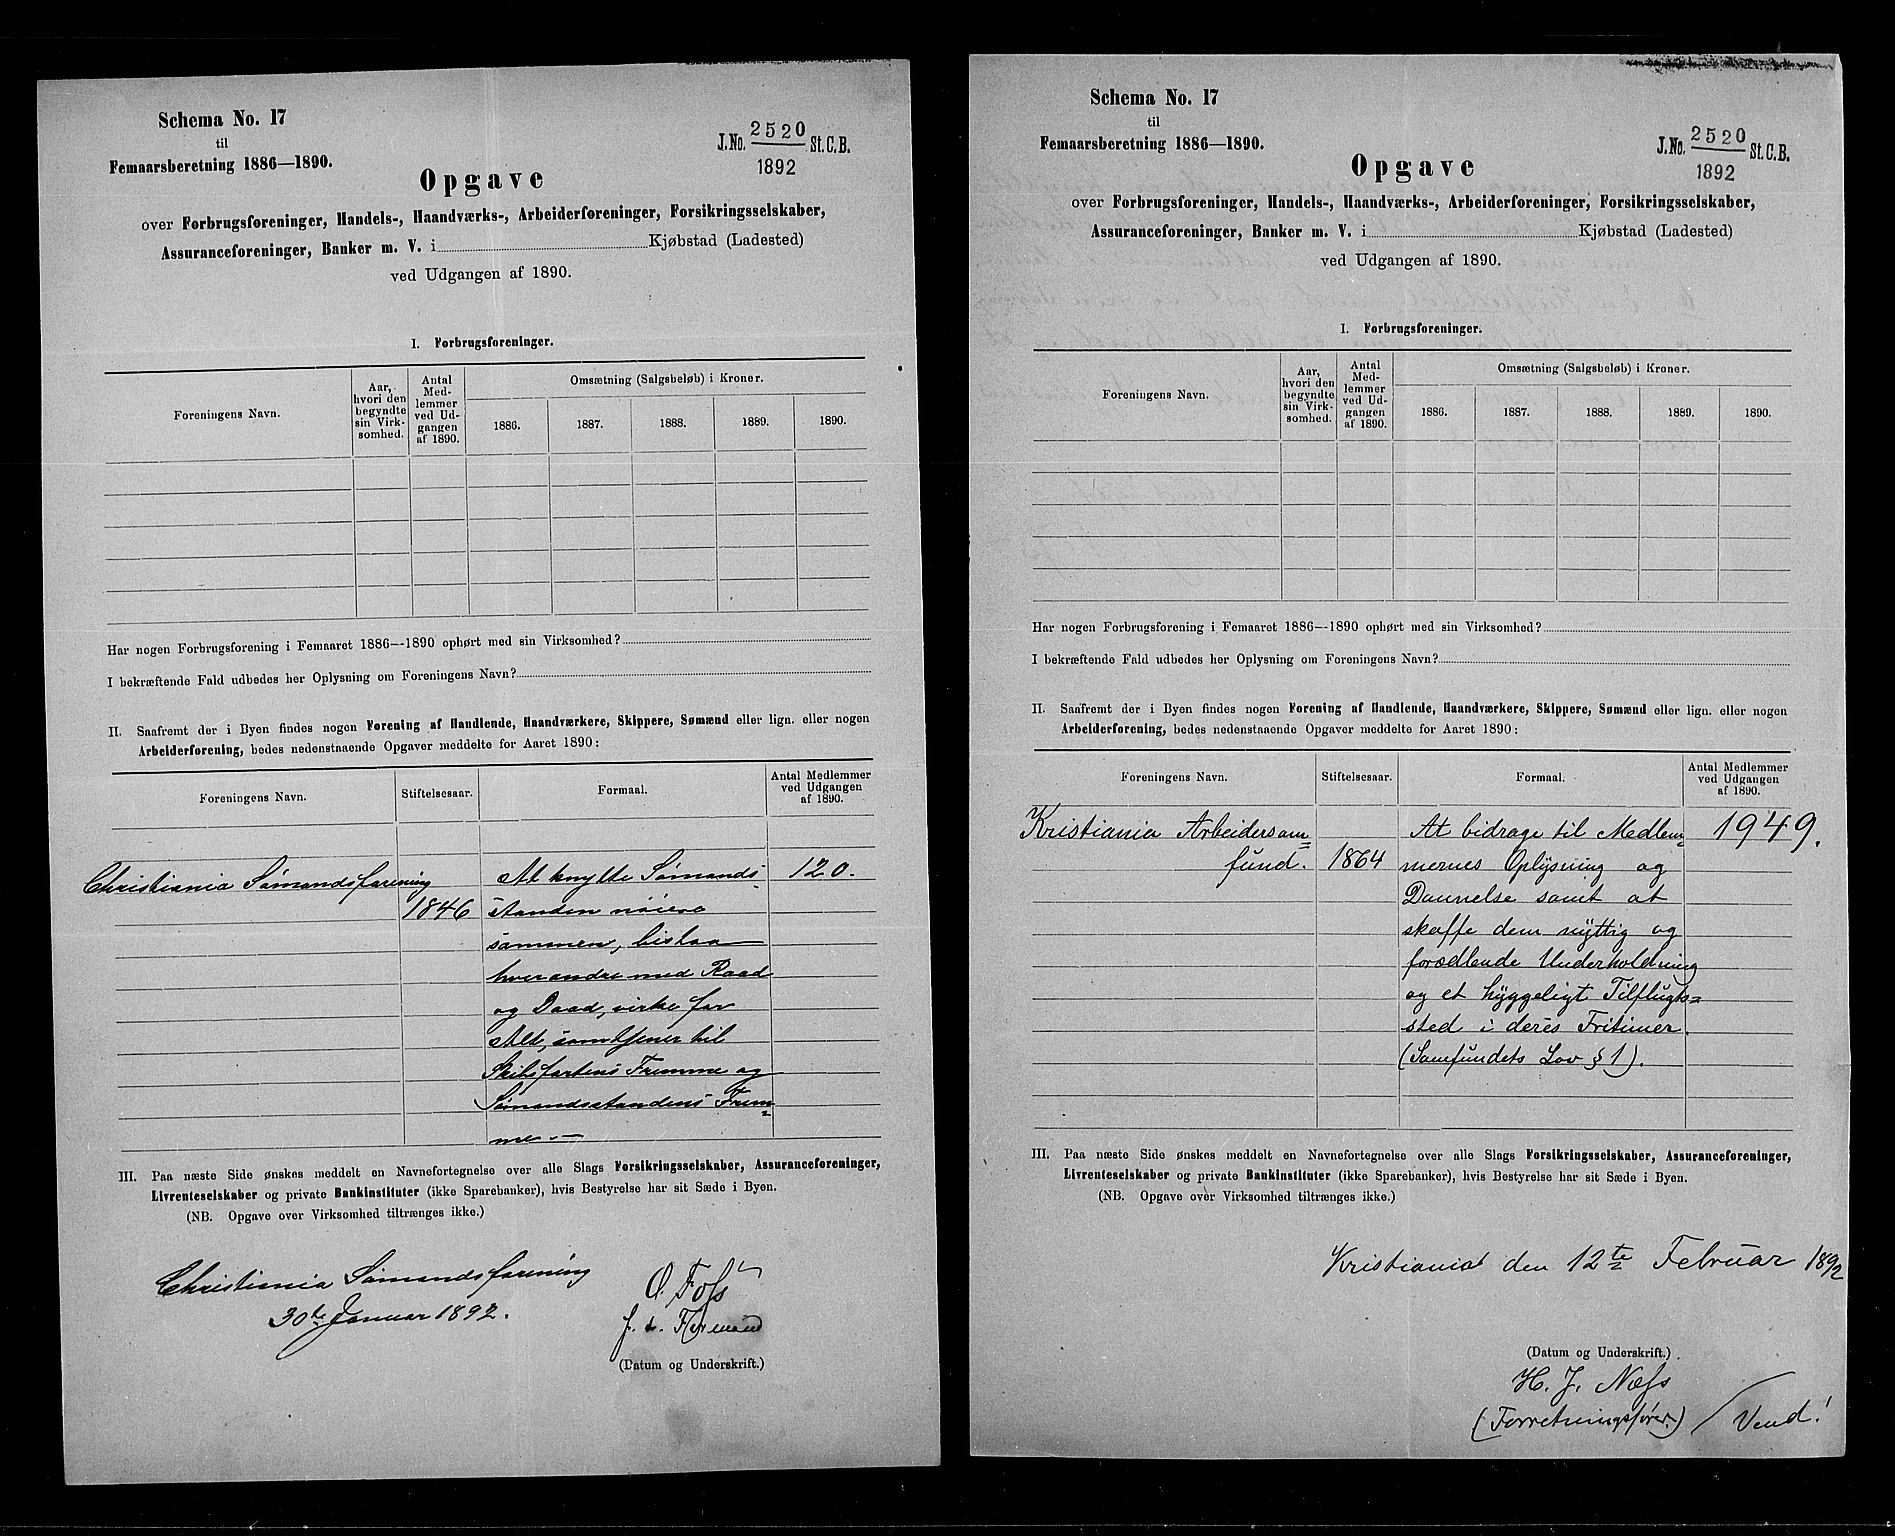 Schema No. 17
til
Femaarsberetning 1886—1890.
J.No. 2520 St.C.B.
1892
Opgave
over Forbrugsforeninger, Handels-, Haandværks-, Arbeiderforeninger, Forsikringsselskaber,
Assuranceforeninger, Banker m. V. i Kjøbstad (Ladested)
ved Udgangen af 1890.
I. Forbrugsforeninger.
Foreningens Navn.
Aar, hvori den begyndte sin Virksomhed.
Antal Medlemmer ved Udgangen af 1890.
Omsætning (Salgsbeløb) i Kroner.
1886. 1887. 1888. 1889. 1890.
Har nogen Forbrugsforening i Femaaret 1886—1890 ophørt med sin Virksomhed?
I bekræftende Fald udbedes her Oplysning om Foreningens Navn?
II. Saafremt der i Byen findes nogen Forening af Handlende, Haandværkere, Skippere, Sømænd eller lign. eller nogen
Arbeiderforening, bedes nedenstaaende Opgaver meddelte for Aaret 1890:
Foreningens Navn. Stiftelsesaar. Formaal. Antal Medlemmer
ved Udgangen
af 1890.
Christiania Sømandsforening At knytte Sømands- 120.
1846 standen nøiere
sammen, bistaa
hverandre med Raad
og Daad, virke for
Alt, som tjener til
Skibsfartens Fremme og
Sømandsstandens Frem=
me.—
III. Paa næste Side ønskes meddelt en Navnefortegnelse over alle Slags Forsikringsselskaber, Assuranceforeninger,
Livrenteselskaber og private Bankinstituter (ikke Sparebanker), hvis Bestyrelse har sit Sæde i Byen.
(NB. Opgave over Virksomhed tiltrænges ikke.)
Christiania Sømandsforening
30te Januar 1892.
O. Foss
f. t. Formand
(Datum og Underskrift.)
Schema No. 17
til
Femaarsberetning 1886—1890.
J.No. 2520 St.C.B.
1892
Opgave
over Forbrugsforeninger, Handels-, Haandværks-, Arbeiderforeninger, Forsikringsselskaber,
Assuranceforeninger, Banker m. V. i Kjøbstad (Ladested)
ved Udgangen af 1890.
I. Forbrugsforeninger.
Foreningens Navn.
Aar, hvori den begyndte sin Virksomhed.
Antal Medlemmer ved Udgangen af 1890.
Omsætning (Salgsbeløb) i Kroner.
1886. 1887. 1888. 1889. 1890.
Har nogen Forbrugsforening i Femaaret 1886—1890 ophørt med sin Virksomhed?
I bekræftende Fald udbedes her Oplysning om Foreningens Navn?
II. Saafremt der i Byen findes nogen Forening af Handlende, Haandværkere, Skippere, Sømænd eller lign. eller nogen
Arbeiderforening, bedes nedenstaaende Opgaver meddelte for Aaret 1890:
Foreningens Navn. Stiftelsesaar. Formaal. Antal Medlemmer
ved Udgangen
af 1890.
Kristiania Arbeidersam= At bidrage til Medlem= 1949.
fund. 1864 mernes Oplysning og
Dannelse samt at
skaffe dem nyttig og
forædlende Underholdning
og et hyggeligt Tilflugts=
sted i deres Fritimer
(Samfundets Lov § 1).
III. Paa næste Side ønskes meddelt en Navnefortegnelse over alle Slags Forsikringsselskaber, Assuranceforeninger,
Livrenteselskaber og private Bankinstituter (ikke Sparebanker), hvis Bestyrelse har sit Sæde i Byen.
(NB. Opgave over Virksomhed tiltrænges ikke.)
Kristiania den 12te Februar 1892
(Datum og Underskrift.)
H. J. Næss
(Forretningsfører.) Vend!